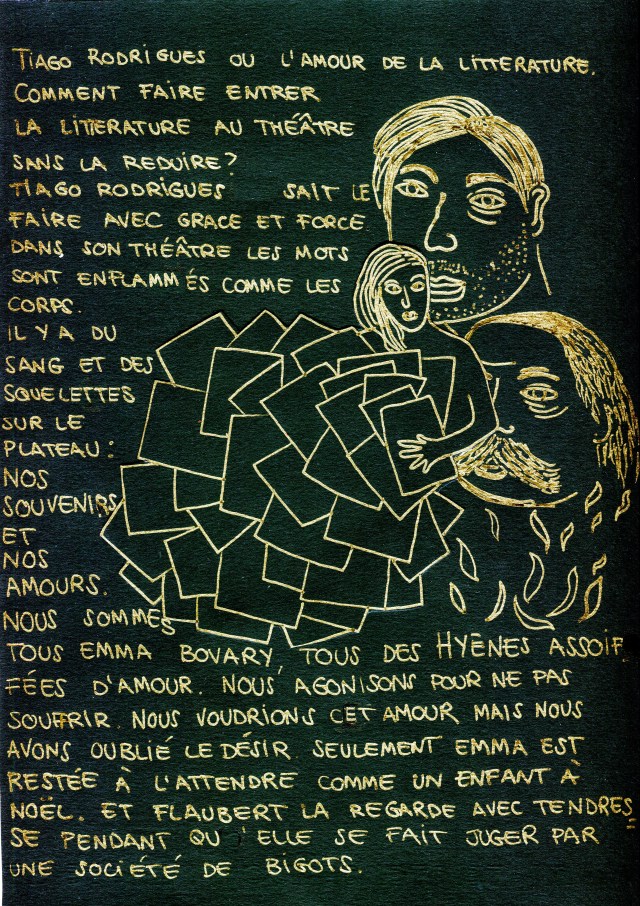 TIAGO RODRIGUES OU L'AMOUR DE LA LITTERATURE.
COMMENT FAIRE ENTRER
LA LITTERATURE AU THÉÂTRE
SANS LA REDUIRE?
TIAGO RODRIGUES SAIT LE
FAIRE AVEC GRACE ET FORCE.
DANS SON THÉÂTRE LES MOTS
SONT ENFLAMMÉS COMME LES
CORPS.
IL Y A DU
SANG ET DES
SQUELETTES
SUR LE
PLATEAU:
NOS
SOUVENIRS
ET
NOS
AMOURS.
NOUS SOMMES
TOUS EMMA BOVARY, TOUS DES HYÈNES ASSOIF_
FÉES D'AMOUR. NOUS AGONISONS POUR NE PAS
SOUFFRIR. NOUS VOUDRIONS CET AMOUR MAIS NOUS
AVONS OUBLIÉ LE DÉSIR. SEULEMENT EMMA EST
RESTÉE À L'ATTENDRE COMME UN ENFANT À
NOËL. ET FLAUBERT LA REGARDE AVEC TENDRES_
SE PENDANT QU'ELLE SE FAIT JUGER PAR
UNE SOCIÉTÉ DE BIGOTS.